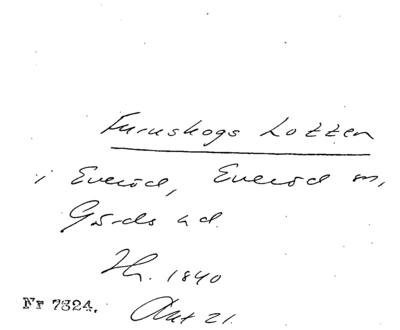 Furuskogs Lotten
i Everöd, Everöd sn,
Gärds hd.
Hr. 1840
Nr 7324. Akt 21.